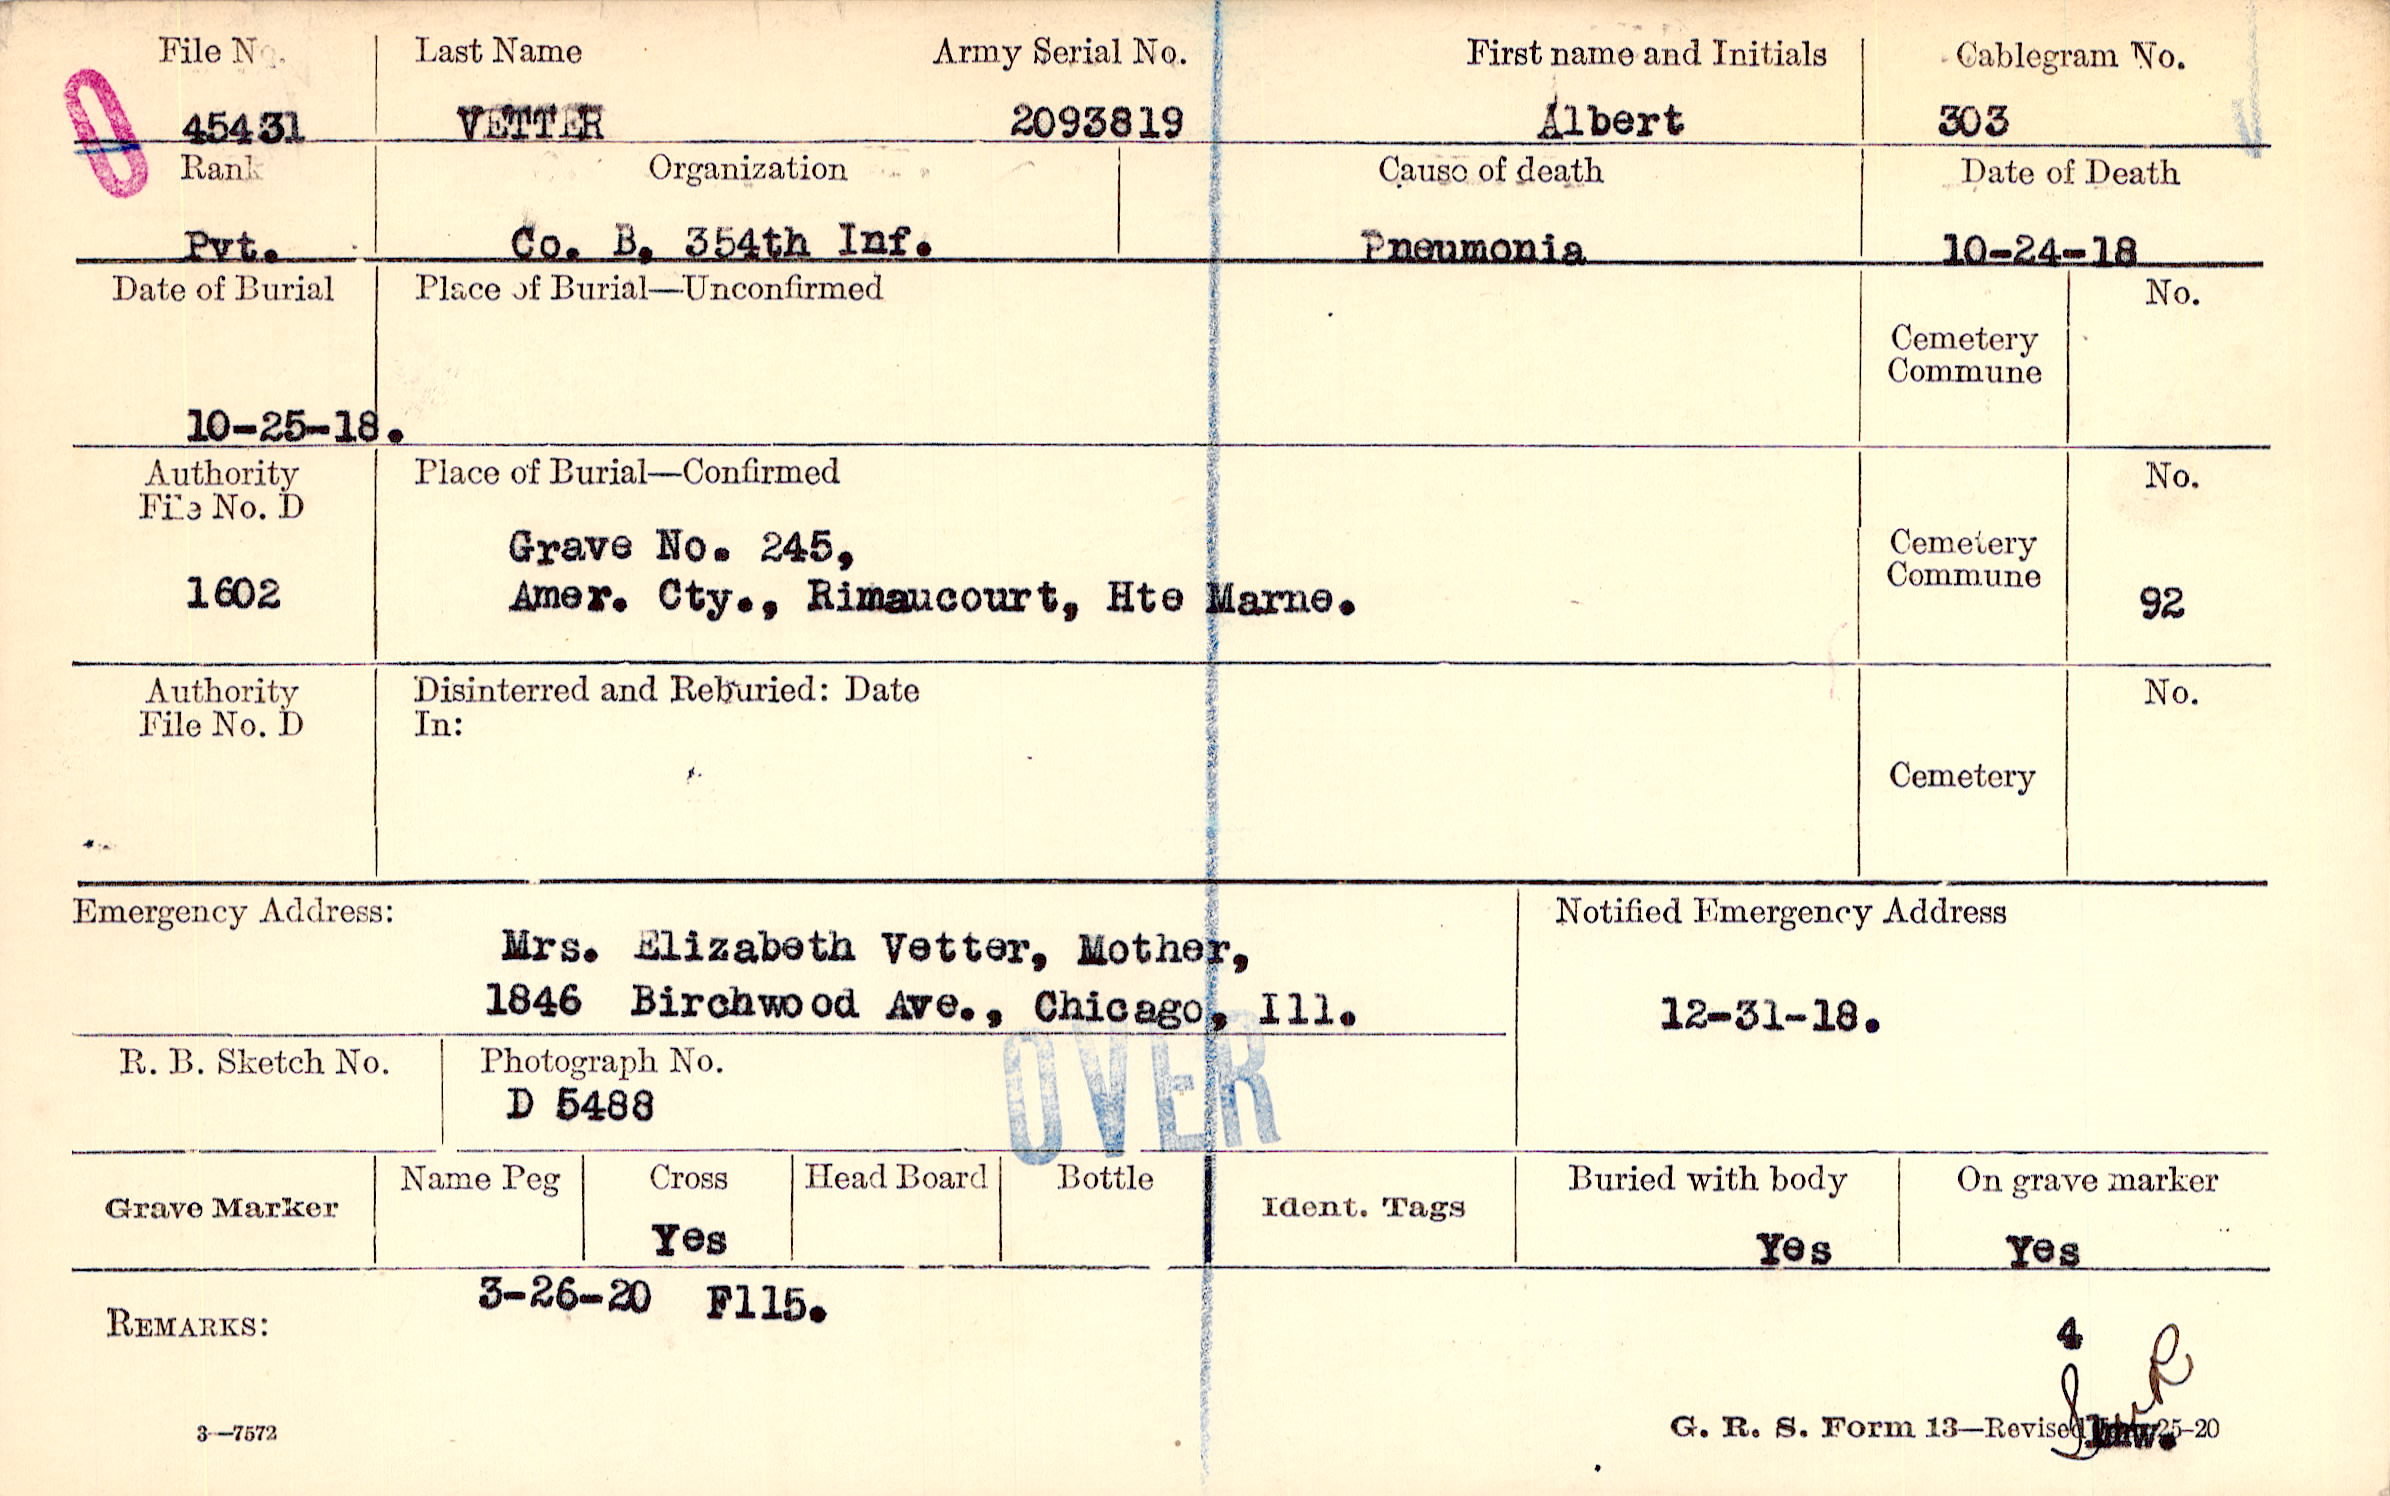 File No. Last Name Army Serial No. First name and Initials Cablegram No.
45431 VETTER 2093819 Albert 303
Rank Organization Cause of death Date of Death
Pvt. Co. B, 354th Inf. Pneumonia 10-24-18
Date of Burial Place of Burial—Unconfirmed No.
Cemetery
Commune
10-25-18.
Authority Place of Burial—Confirmed No.
File No. D
Grave No. 245, Cemetery
Commune
1602 Amer. Cty., Rimaucourt, Hte Marne. 92
Authority Disinterred and Reburied: Date No.
File No. D In:
Cemetery
Emergency Address: Notified Emergency Address
Mrs. Elizabeth Vetter, Mother,
1846 Birchwood Ave., Chicago, Ill. 12-31-18.
OVER
R. B. Sketch No. Photograph No.
D 5488
Name Peg Cross Head Board Bottle Buried with body On grave marker
Grave Marker Ident. Tags
Yes Yes Yes
3-26-20 F115.
REMARKS:
4
3—7572 G. R. S. Form 13—Revised 25-20